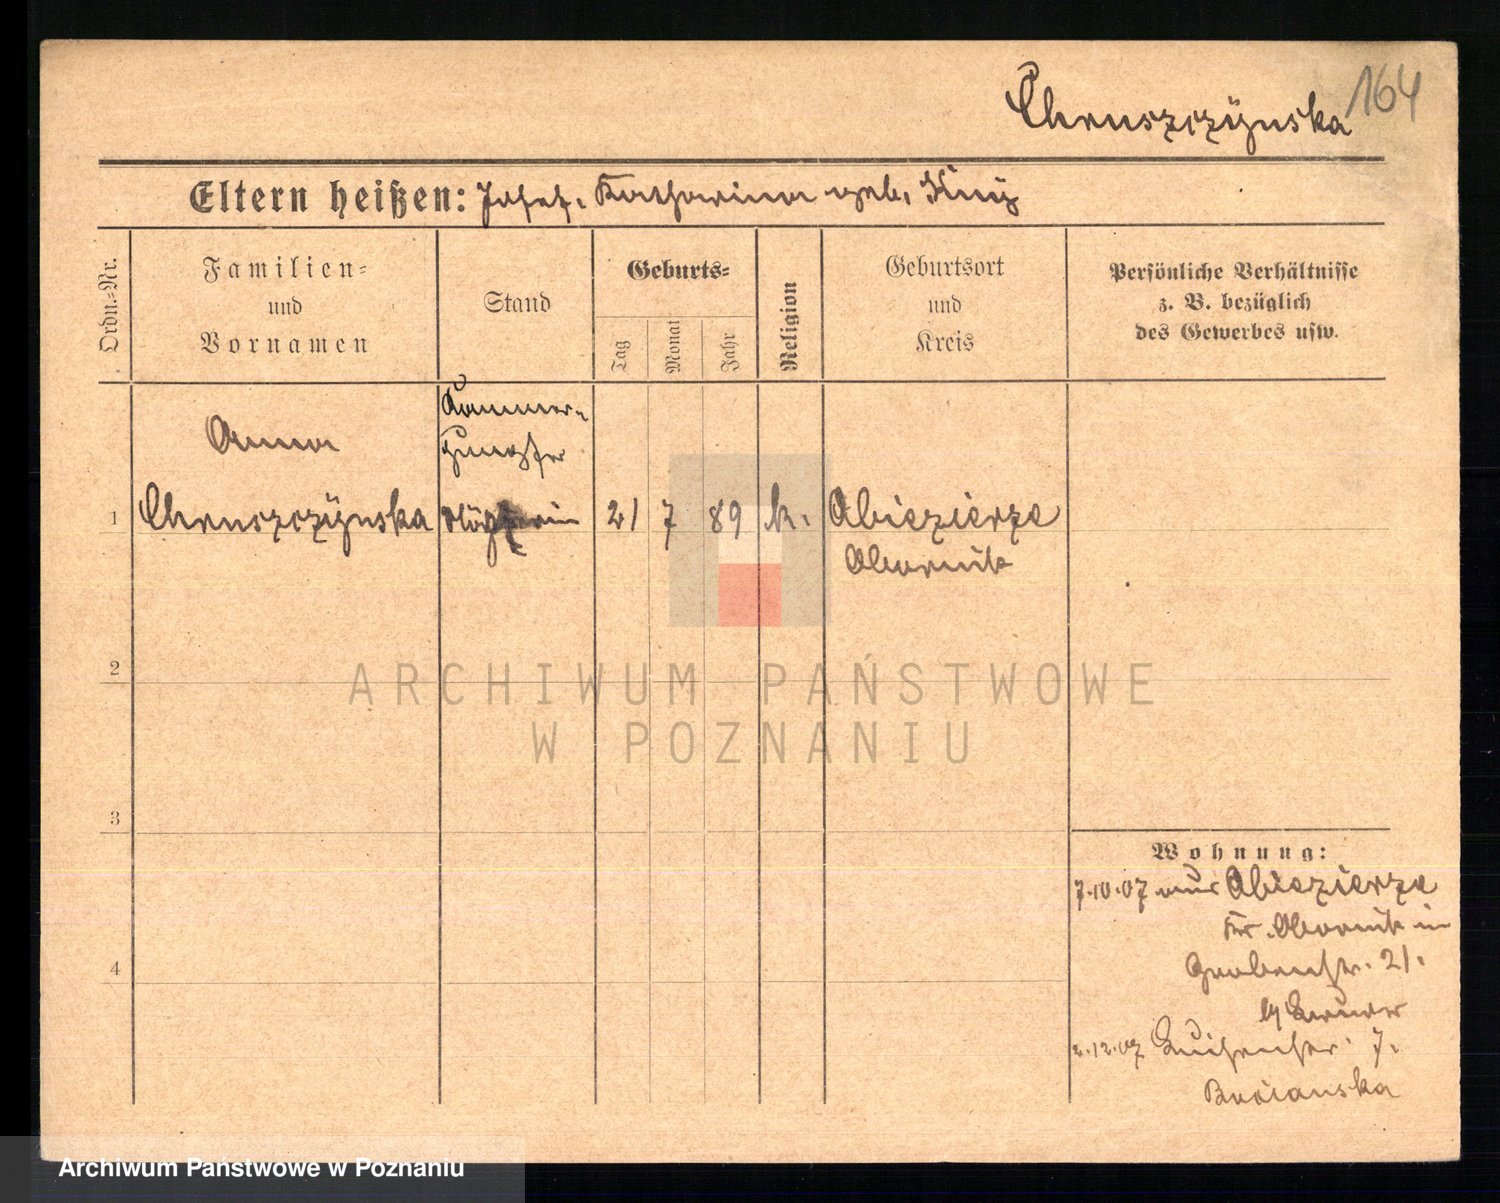 164
Chruszczÿnska
Eltern heißen: Josef. Katharina geb.
Ordn.=Nr.
Familien=
und
Vornamen
Stand
Geburts=
Tag
Monat
Jahr
Religion
Geburtsort
und
Kreis
Persönliche Verhältnisse
z. B. bezüglich
des Gewerbes usw.
Kammer-
Jungfer
Anna
1 Chruszczÿnska 21 7 89 k. Abiezierze
Obornik
2
3
4
Wohnung:
7.10.07 aus Abiezierze
Kr. Obornik in
Grabenstr. 21.
2.12.07 Luisenstr. 7.
ARCHIWUM PAŃSTWOWE
W POZNANIU
Archiwum Państwowe w Poznaniu